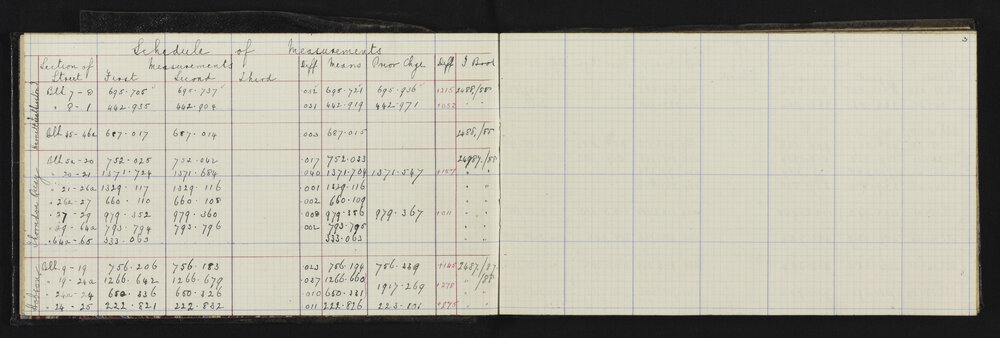 Schedule of Measurements
Section of Street Measurements First Second Third Diff Means Prior Chge Diff F Book
Blk 7-8 695.705 695.737 032 695.721 695.936 +215 2488/88
" 8-1 442.935 442.904 031 442.919 442.971 +052
Blk 45-46a 687.017 687.014 003 687.015 2488/88
Blk 5a-20 752.025 752.042 017 752.033 2487/88
" 20-21 1371.724 1371.684 040 1371.704 1371.547 -157 " "
" 21-26a 1329.117 1329.116 001 1329.116 " "
" 26a-27 660.110 660.108 002 660.109 " "
" 27-29 979.352 979.360 008 979.356 979.367 +011 " "
" 29-64a 793.794 793.796 002 793.795 " "
" 64a-65 333.063 333.063 " "
Blk 9-19 756.206 756.183 023 756.194 756.339 +145 2487/87
" 19-24a 1266.642 1266.679 037 1266.660 " /88
" 24a-24 650.336 650.326 010 650.331 1917.269 +278 "
" 24-25 222.821 222.832 011 222.826 "
3